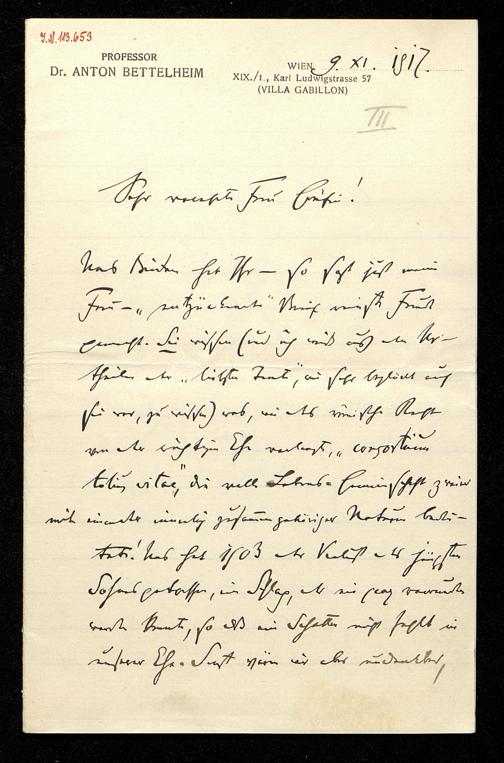 J.N. 113.653
PROFESSOR
Dr. ANTON BETTELHEIM
WIEN, 9. XI. 1917.
XIX./1., Karl Ludwigstrasse 57
(VILLA GABILLON)
III
Sehr verehrte Frau Gräfin!
Uns Beiden hat Ihr – so sagt just meine
Frau – „entzückender“ Brief reinste Freude
gemacht. Sie wissen (und ich weiß aus den Ur-
theilen der „liebsten Tante“, wie sehr
sie war, zu wissen) was, wie das römische Recht
von der richtigen Ehe verlangt, „consortium
totius vitae“, die volle Lebens-Gemeinschaft zweier
mit einander innerlich zusammengehöriger Naturen bedeu-
tet! Uns hat 1903 der Verlust des jüngsten
Sohnes getroffen, ein Schlag, der nie ganz verwunden
werden konnte, so daß ein Schatten nicht fehlt in
unserer Ehe. Sonst wären wir aber undankbar,